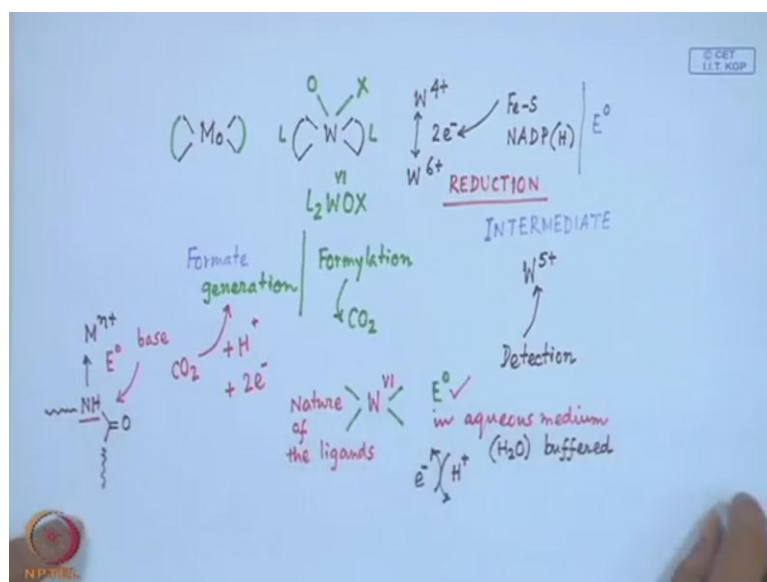 © CET
I.I.T. KGP
Mo
O X
L W L
W4+
2e-
W6+
Fe-S
NADP(H)
E°
REDUCTION
VI
L2WOX
INTERMEDIATE
W5+
Detection
Formate
generation
Formylation
CO2
CO2
+ H+
+ 2e-
Mn+
E° base
NH
O
Nature
of
the ligands
W VI
E° ✓
in aqueous medium
(H2O) buffered
e- H+
NPTEL